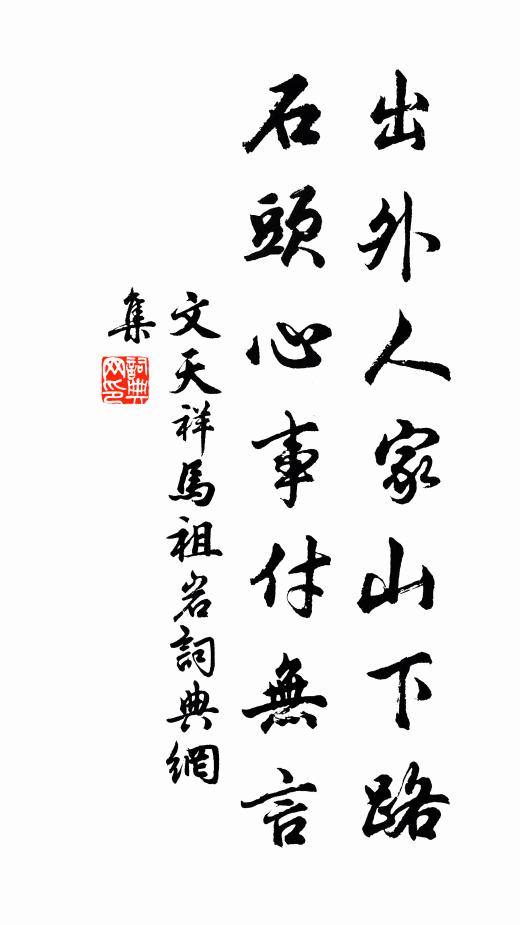 出外人家山下路
石頭心事付無言
文天祥馬祖岩詞典網
集
詞典網印